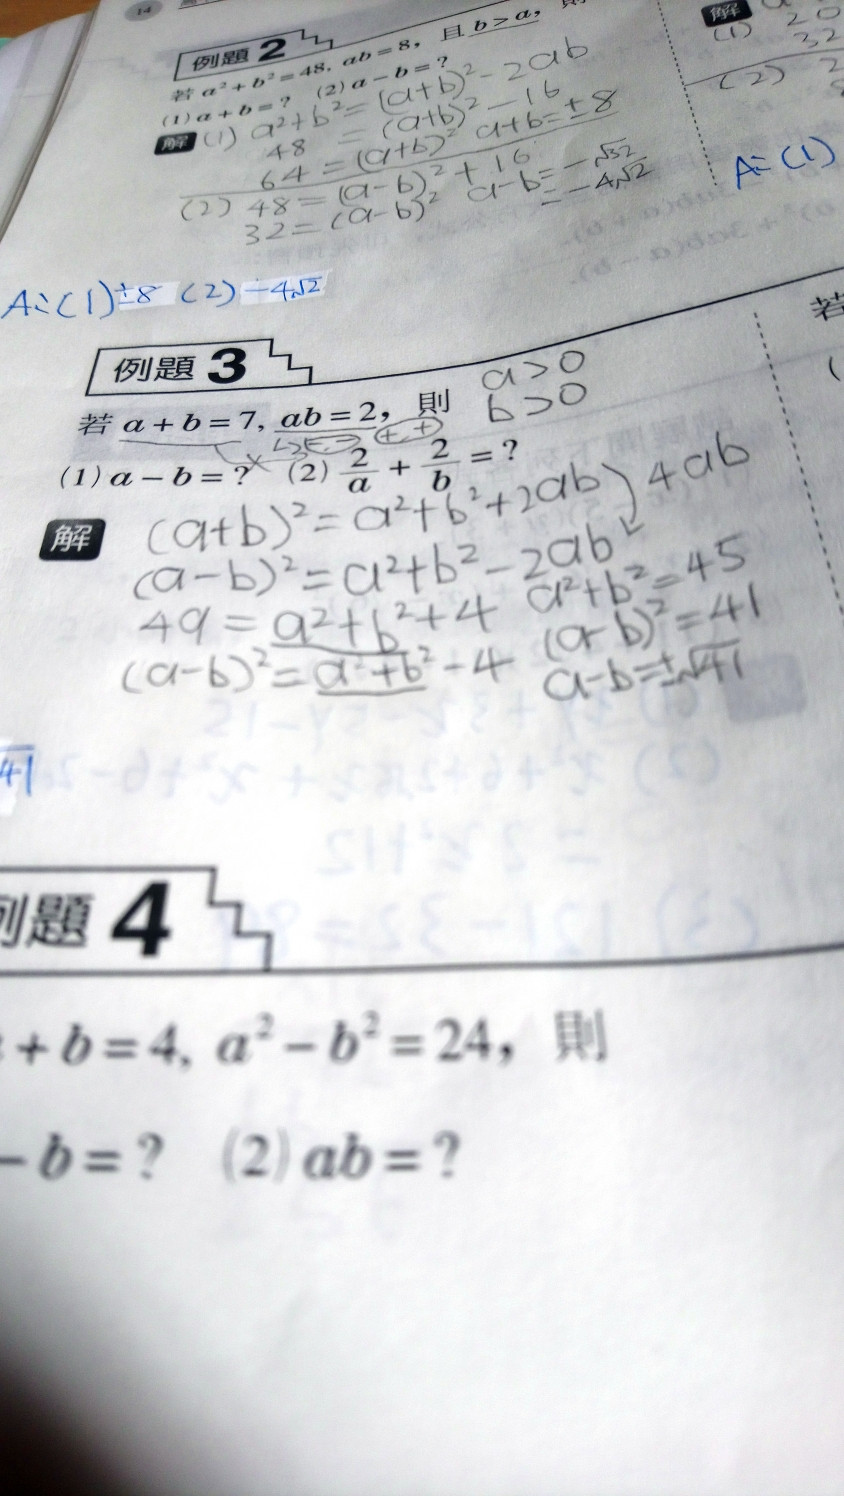 14
例題 2
若 a² + b² = 48, ab = 8, 且 b > a,
(1) a + b = ? (2) a − b = ?
解 (1) a²+b² = (a+b)² − 2ab
48 = (a+b)² − 16
64 = (a+b)² a+b = ±8
(2) 48 = (a−b)² + 16 a−b = −√32
32 = (a−b)² = −4√2
A:(1) ±8 (2) −4√2
解
(1) 20
32
(2) 2
A:(1)
例題 3
a>0
b>0
若 a + b = 7, ab = 2, 則
(1) a − b = ? (2) 2/a + 2/b = ?
解 (a+b)² = a²+b²+2ab 4ab
(a−b)² = a²+b²−2ab
49 = a²+b²+4 a²+b² = 45
(a−b)² = a²+b²−4 (a−b)² = 41
a−b = ±√41
√41
若
(
例題 4
+ b = 4, a² − b² = 24, 則
− b = ? (2) ab = ?